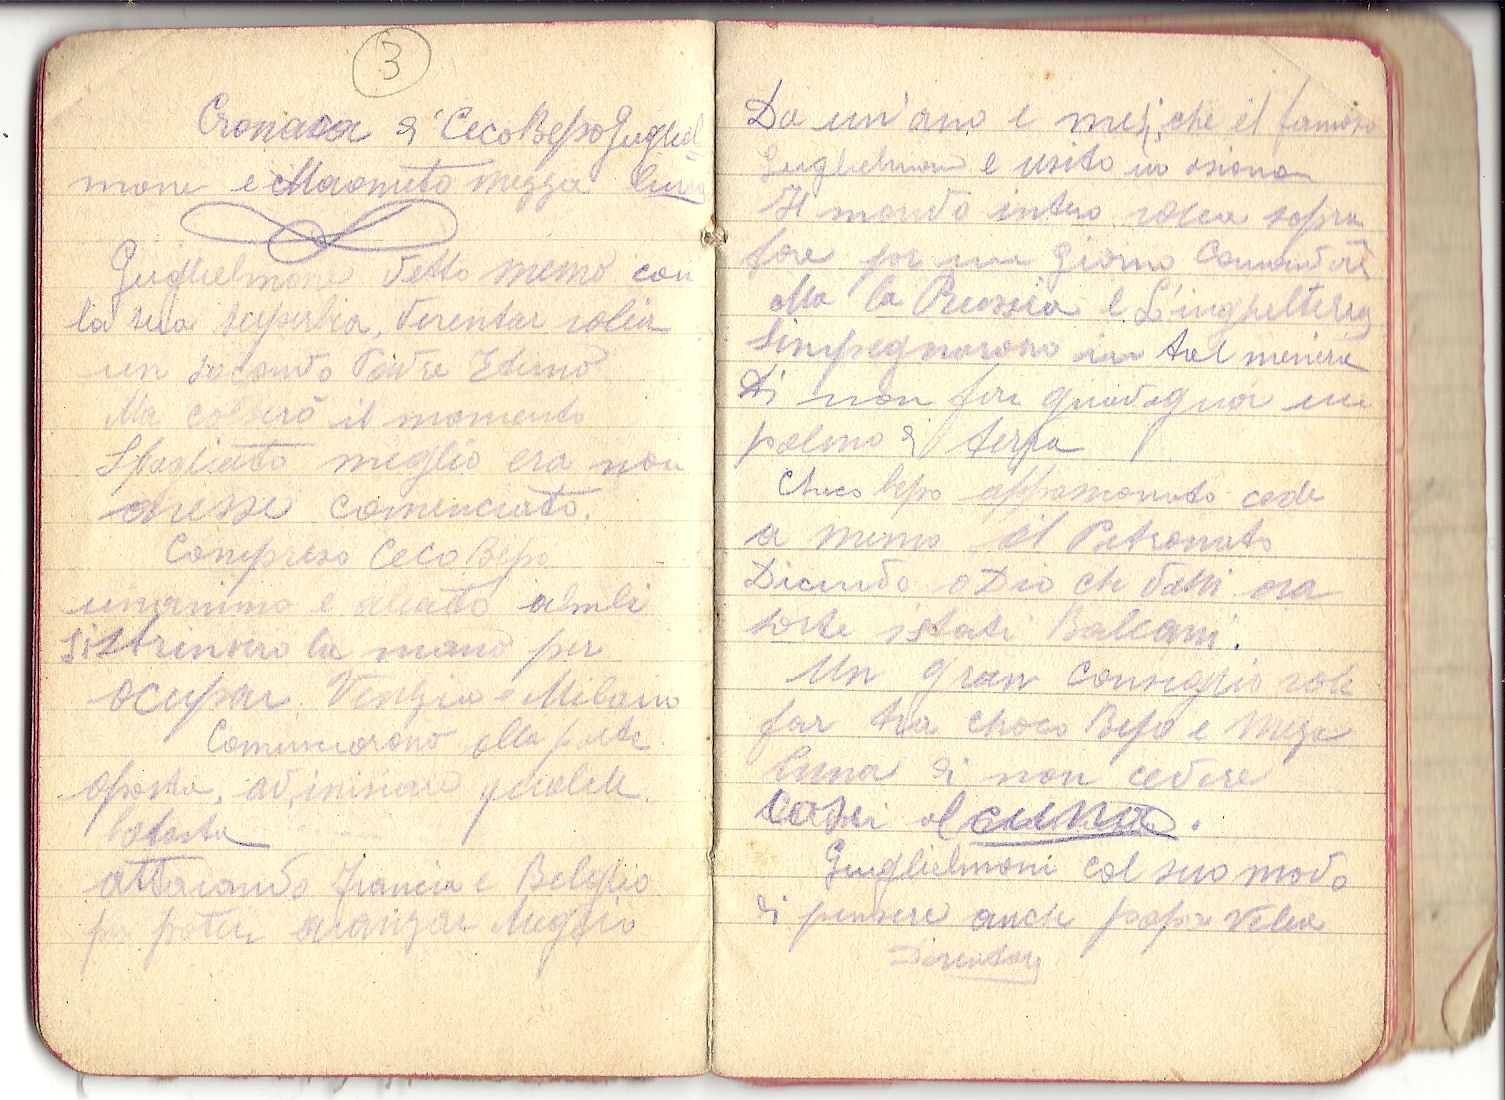 3
Cronaca di Ceco Bepo Gugliel=
mone e Maometo mezza luna
Guglielmone detto memo con
la sua superbia, diventar voleva
un secondo Padre Eterno
Ma col però il momento
Sbagliato meglio era non
avesse comenciato.
Compreso Ceco Bepo
unanimo e aleato ambi
si strinsero la mano per
ocupar Venezia e Milano
Cominciorono alla parte
oposta, ad, iniziare qualche
batosta
attacando Francia e Belgio
p poter avanzar Meglio
Da un'ano e mesi, che il famoso
Guglielmone e usito in
Il mondo intero voleva sopra
fare per un giorno Comandare
Ma la Russia e L'inghilterra
s'impegnorono in tal meniera
Di non fare guadagnar un
palmo di terra
Checo bepo appasionato cede
a memo il Patronato
Dicendo o Dio che dassi ora
sorte i stati Balcani.
Un gran Consiglio vole
far tra checo Bepo e Meza
luna di non cedere
cossì al cuna.
Guglielmone col suo modo
di pensare anche papa voleva
Diventare